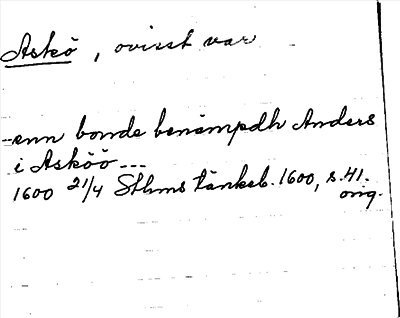 Askö, ovisst var
--enn bonde benämpdh Anders
i Asköö---
1600 21/4 Sthms tänkeb. 1600, s.41.
orig.